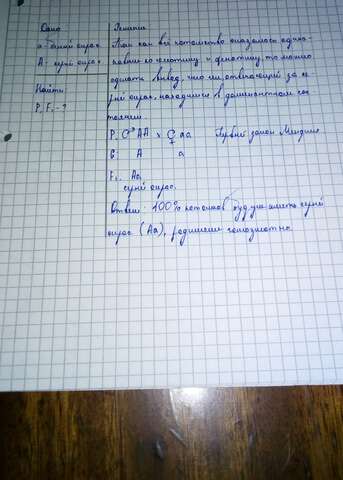 Дано
а - белый окрас
А - серый окрас
Найти
P, F₁ - ?
Решение
Так как всё потомство оказалось одина-
ковым по генотипу и фенотипу, то можно
сделать вывод, что ген, отвечающий за се-
рый окрас, находился в доминантном сос
тоянии.
P: ♂ АА × ♀ аа Первый закон Менделя
G: А а
F₁: Аа
серый окрас.
Ответ: 100% потомков будут иметь серый
окрас (Аа), родители гомозиготны.